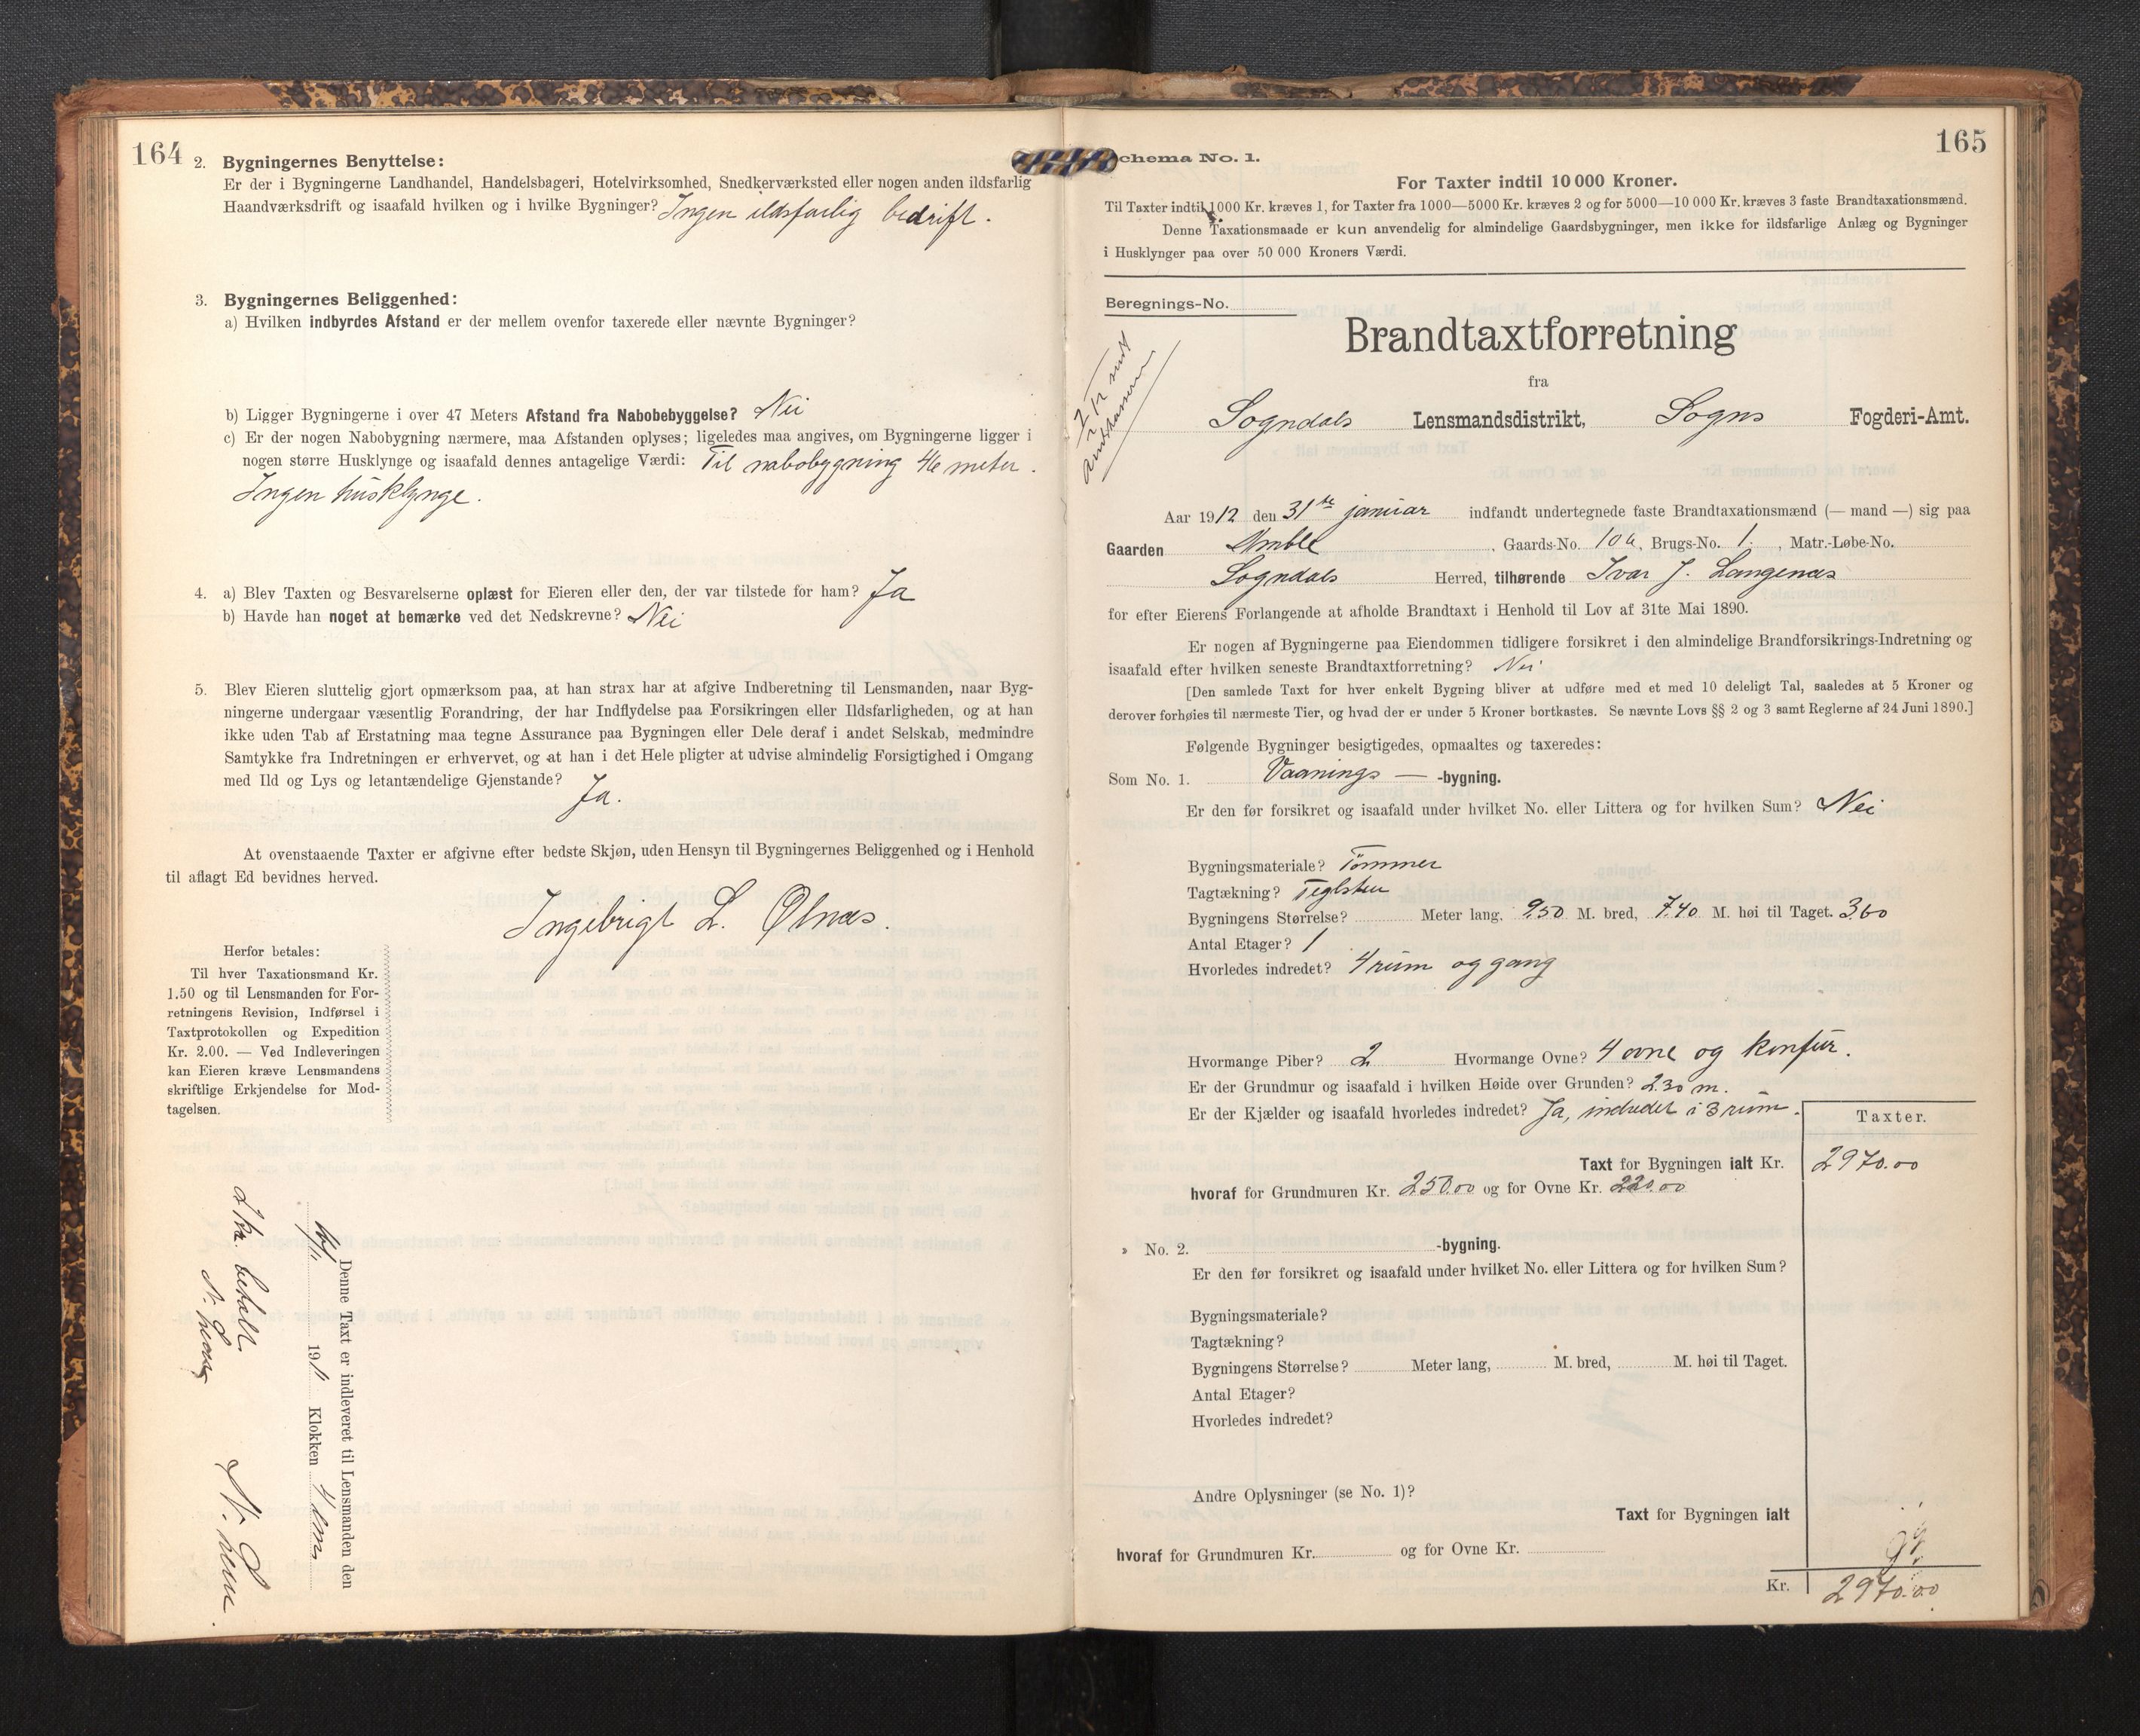 164
2. Bygningernes Benyttelse:
Er der i Bygningerne Landhandel, Handelsbageri, Hotelvirksomhed, Snedkerværksted eller nogen anden ildsfarlig
Haandværksdrift og isaafald hvilken og i hvilke Bygninger? Ingen ildsfarlig bedrift.
3. Bygningernes Beliggenhed:
a) Hvilken indbyrdes Afstand er der mellem ovenfor taxerede eller nævnte Bygninger?
b) Ligger Bygningerne i over 47 Meters Afstand fra Nabobebyggelse? Nei
c) Er der nogen Nabobygning nærmere, maa Afstanden oplyses; ligeledes maa angives, om Bygningerne ligger i
nogen større Husklynge og isaafald dennes antagelige Værdi: Til nabobygning 46 meter.
Ingen husklynge.
4. a) Blev Taxten og Besvarelserne oplæst for Eieren eller den, der var tilstede for ham? Ja
b) Havde han noget at bemærke ved det Nedskrevne? Nei
5. Blev Eieren sluttelig gjort opmærksom paa, at han strax har at afgive Indberetning til Lensmanden, naar Byg-
ningerne undergaar væsentlig Forandring, der har Indflydelse paa Forsikringen eller Ildsfarligheden, og at han
ikke uden Tab af Erstatning maa tegne Assurance paa Bygningen eller Dele deraf i andet Selskab, medmindre
Samtykke fra Indretningen er erhvervet, og at han i det Hele pligter at udvise almindelig Forsigtighed i Omgang
med Ild og Lys og letantændelige Gjenstande? Ja.
At ovenstaaende Taxter er afgivne efter bedste Skjøn, uden Hensyn til Bygningernes Beliggenhed og i Henhold
til aflagt Ed bevidnes herved.
Ingebrigt L. Ølnæs.
Herfor betales:
Til hver Taxationsmand Kr.
1.50 og til Lensmanden for For-
retningens Revision, Indførsel i
Taxtprotokollen og Expedition
Kr. 2.00. — Ved Indleveringen
kan Eieren kræve Lensmandens
skriftlige Erkjendelse for Mod-
tagelsen.
Denne Taxt er indleveret til Lensmanden den
1911 Klokken 4 em
2 kr. betalt
165
Schema No. 1.
For Taxter indtil 10 000 Kroner.
Til Taxter indtil 1000 Kr. kræves 1, for Taxter fra 1000—5000 Kr. kræves 2 og for 5000—10 000 Kr. kræves 3 faste Brandtaxationsmænd.
Denne Taxationsmaade er kun anvendelig for almindelige Gaardsbygninger, men ikke for ildsfarlige Anlæg og Bygninger
i Husklynger paa over 50 000 Kroners Værdi.
Beregnings-No.
Brandtaxtforretning
fra
Sogndals Lensmandsdistrikt, Sogns Fogderi-Amt.
Aar 1912 den 31te januar indfandt undertegnede faste Brandtaxationsmænd (— mand —) sig paa
Gaarden Amble, Gaards-No. 10a, Brugs-No. 1, Matr.-Løbe-No.
Sogndals Herred, tilhørende Ivar J. Langenæs
for efter Eierens Forlangende at afholde Brandtaxt i Henhold til Lov af 31te Mai 1890.
Er nogen af Bygningerne paa Eiendommen tidligere forsikret i den almindelige Brandforsikrings-Indretning og
isaafald efter hvilken seneste Brandtaxtforretning? Nei
[Den samlede Taxt for hver enkelt Bygning bliver at udføre med et med 10 deleligt Tal, saaledes at 5 Kroner og
derover forhøies til nærmeste Tier, og hvad der er under 5 Kroner bortkastes. Se nævnte Lovs §§ 2 og 3 samt Reglerne af 24 Juni 1890.]
Følgende Bygninger besigtigedes, opmaaltes og taxeredes:
Som No. 1. Vaanings — -bygning.
Er den før forsikret og isaafald under hvilket No. eller Littera og for hvilken Sum? Nei
Bygningsmateriale? Tømmer
Tagtækning? Teglsten
Bygningens Størrelse? Meter lang, 9.50 M. bred, 7.40 M. høi til Taget. 3.60
Antal Etager? 1
Hvorledes indredet? 4 rum og gang
Hvormange Piber? 2 Hvormange Ovne? 4 ovne og komfur.
Er der Grundmur og isaafald i hvilken Høide over Grunden? 2.30 m.
Er der Kjælder og isaafald hvorledes indredet? Ja, indredet i 3 rum.
Taxter.
Taxt for Bygningen ialt Kr. 2970.00
hvoraf for Grundmuren Kr. 250.00 og for Ovne Kr. 220.00
» No. 2. -bygning.
Er den før forsikret og isaafald under hvilket No. eller Littera og for hvilken Sum?
Bygningsmateriale?
Tagtækning?
Bygningens Størrelse? Meter lang, M. bred, M. høi til Taget.
Antal Etager?
Hvorledes indredet?
Andre Oplysninger (se No. 1)?
Taxt for Bygningen ialt
hvoraf for Grundmuren Kr. og for Ovne Kr.
Kr. 2970.00